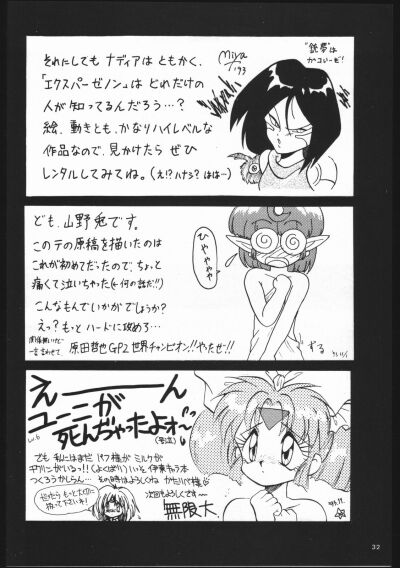 それにしても ナディアは ともかく、
「エクスパーゼノン」は どれだけの
人が 知ってるんだろう…?
絵、動きとも、かなりハイレベルな
作品なので、見かけたら ぜひ
レンタルしてみてね。(え!? ハナシ? はは…)
Miya
'93
"銃夢"は
かっこいーぜ!
ども、山野兎です。
このテの原稿を描いたのは
これが初めてだったので、ちょっと
痛くて泣いちゃった(←何の話だ!!)
こんなもんでいかがでしょうか?
えっ? もっと ハードに攻めろ…
関係無いけど
一言言わせて
原田哲也GP2 世界チャンピオン!! やったぜ!!
ひゃややや
ずる
えーーーん
ユーニが
死んぢゃったよォ〜
(号泣)
でも 私にはまだ パフ様が ミルクが
いるっ!! (よくばり) いいそ 伊東もう1本
つくろうかしらん… その時はよろしくね
次回もよろしくです〜
無限大
だったら もっと大切に
扱って下さいネ!
32